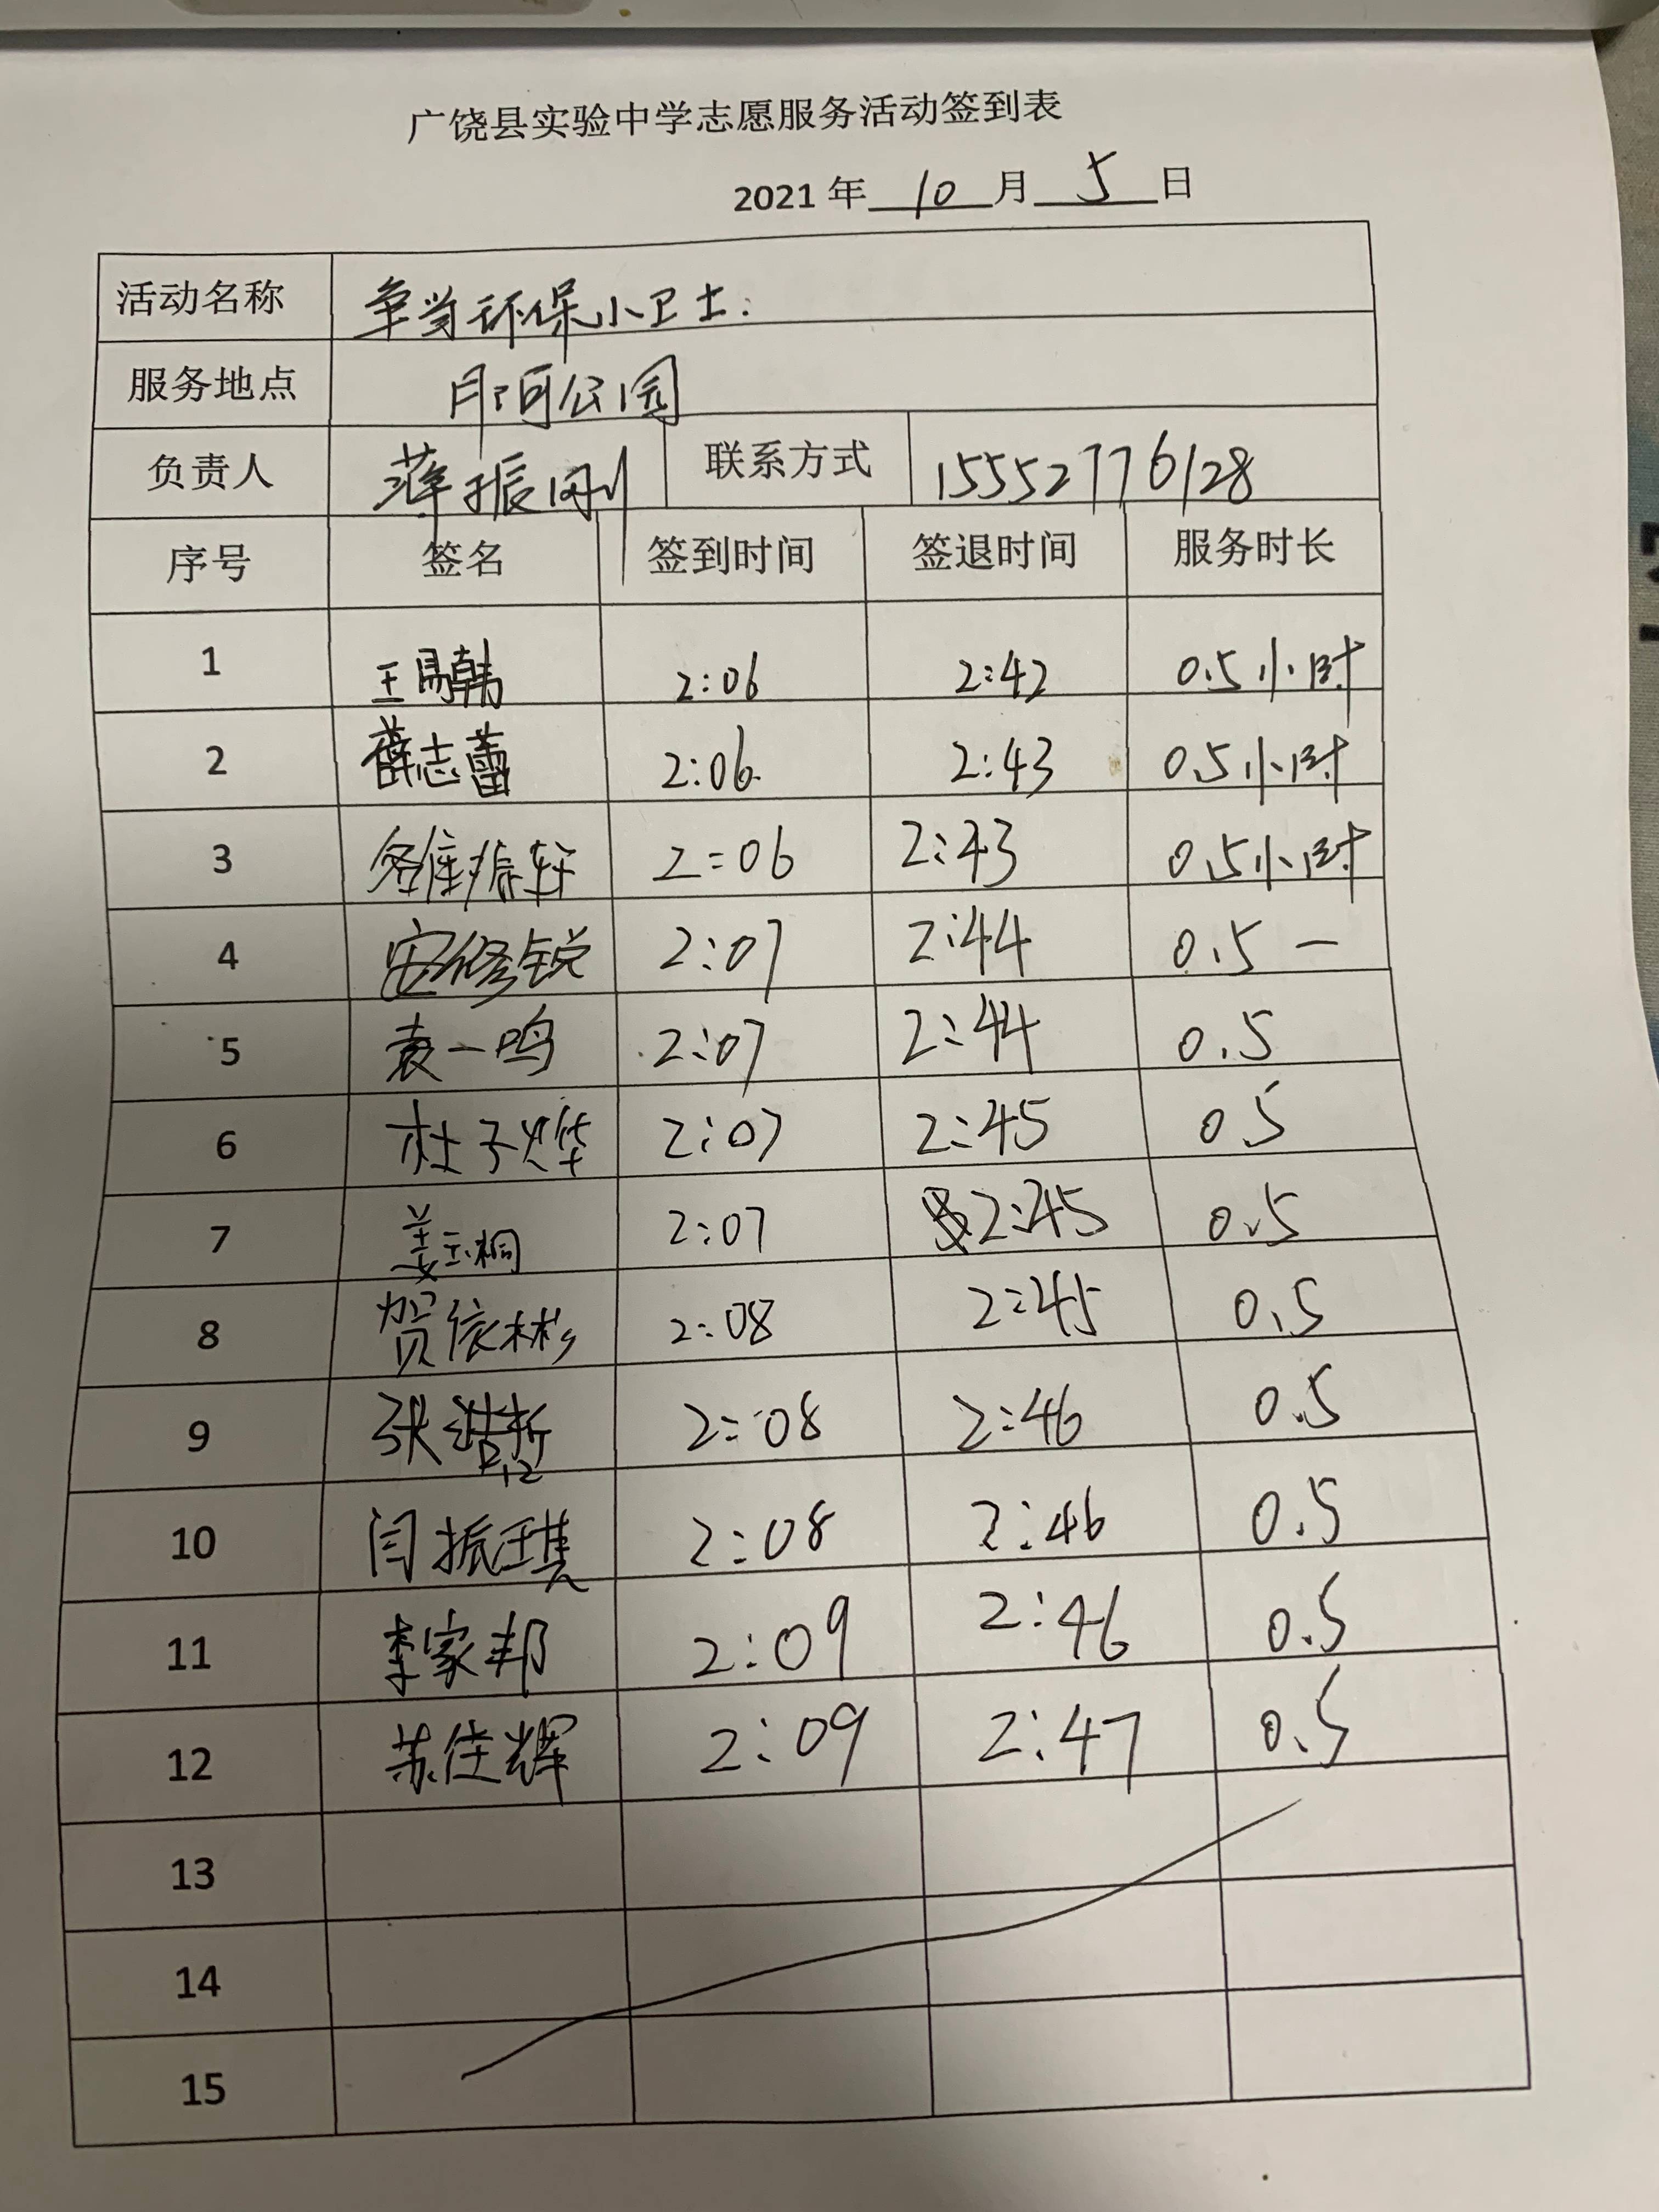 广饶县实验中学志愿服务活动签到表
2021年 10 月 5 日
活动名称 争当环保小卫士.
服务地点 月河公园
负责人 薄振刚 联系方式 15552776128
序号 签名 签到时间 签退时间 服务时长
1 王易韩 2:06 2:42 0.5小时
2 薛志蕾 2:06 2:43 0.5小时
3 振轩 2:06 2:43 0.5小时
4 安修锐 2:07 2:44 0.5 —
5 袁一鸣 2:07 2:44 0.5
6 杜子烨 2:07 2:45 0.5
7 姜玉桐 2:07 2:45 0.5
8 贺依彬 2:08 2:45 0.5
9 张浩哲 2:08 2:46 0.5
10 闫振琪 2:08 2:46 0.5
11 李家邦 2:09 2:46 0.5
12 苏佳辉 2:09 2:47 0.5
13
14
15